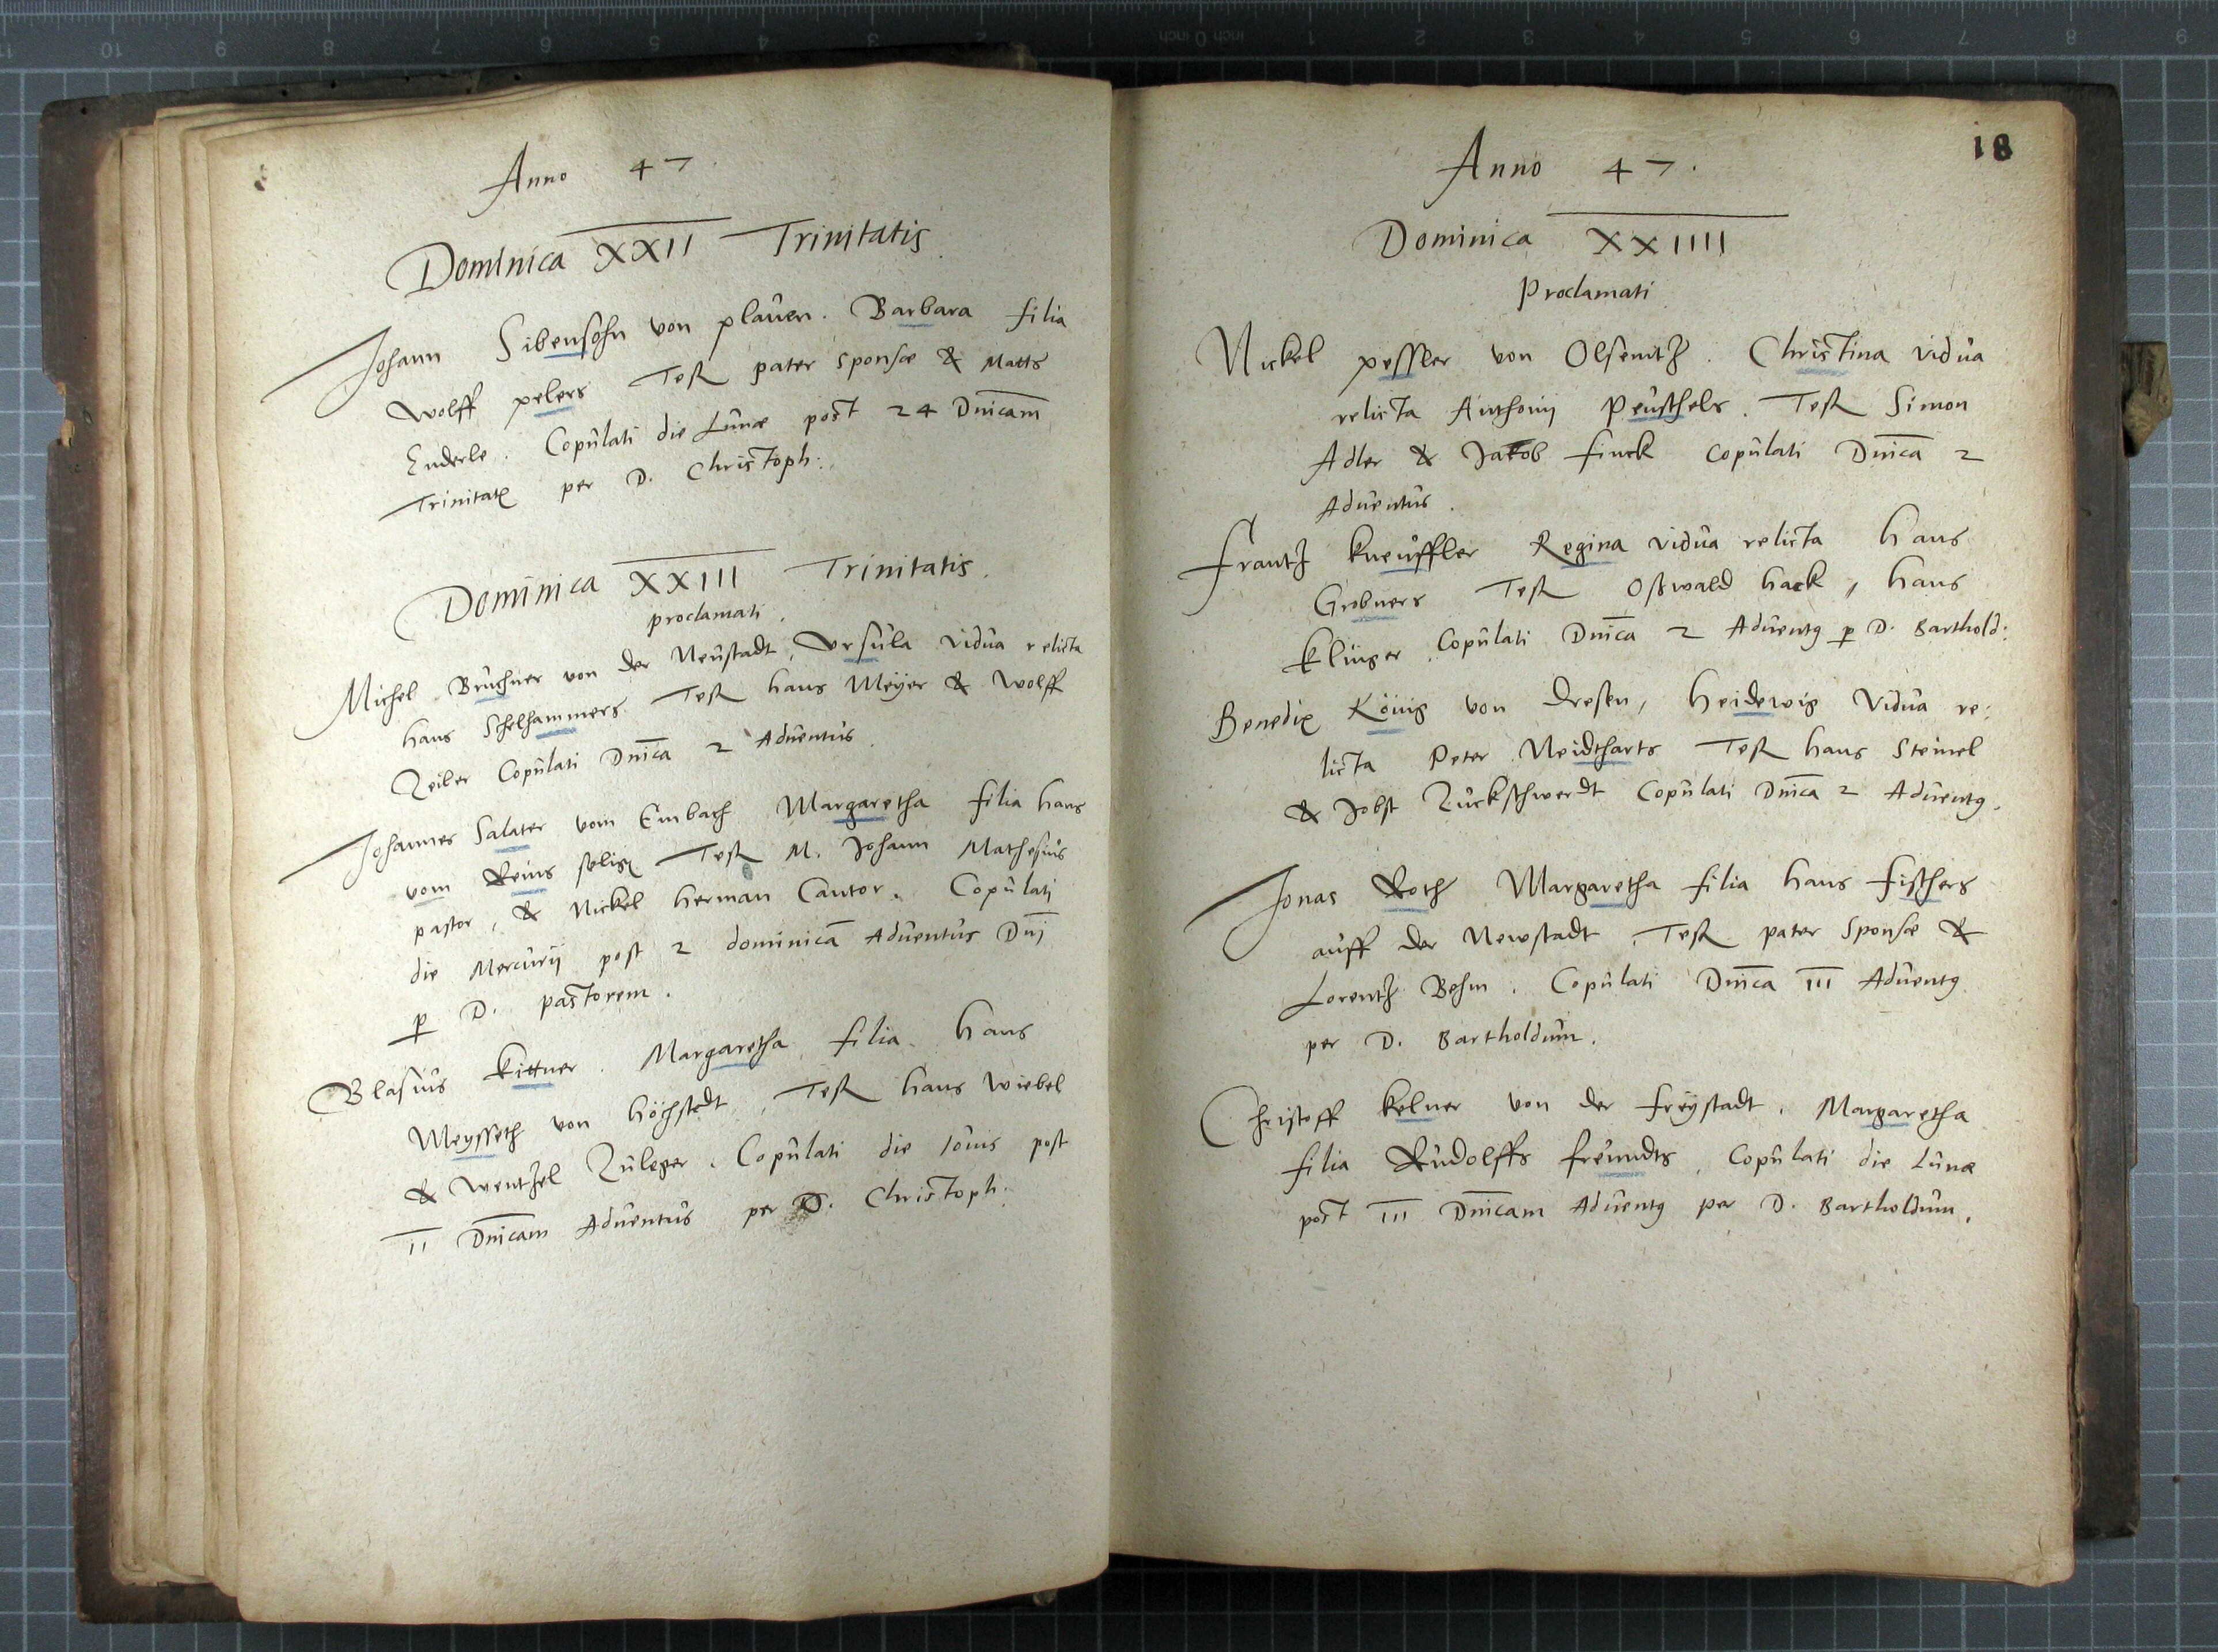 Anno 47.
Dominica XXII Trinitatis.
Johann Sibensohn von plauen. Barbara filia
Wolff pelers Test pater sponsæ & Matts
Enderle. Copulati die Lunæ post 24 Dnicam
Trinitat per D. Christoph:
Dominica XXIII Trinitatis.
proclamati.
Michel Bruchner von der Neustadt, Ursula vidua relicta
hans Schelhammers Test hans Meÿer & Wolff
Zeiler Copulati Dnica 2 Aduentus.
Johannes Salater vom Einbach Margaretha filia hans
vom Reins selig Test M. Johann Mathesius
pastor, & Nickel Herman Cantor. Copulati
die Mercurij post 2 dominicā Aduentus Dnj
p D. pastorem.
Blasius kittner. Margaretha filia hans
Meysseth von höchstedt, Test hans Wiebel
& Wentzel Züleger. Copulati die Iouis post
II Dnicam Aduentus per D. Christoph.
18
Anno 47.
Dominica XXIIII
Proclamati
Nickel pessler von Olsenitz. Christina vidua
relicta Anthonij Peuschels. Test Simon
Adler & Jakob finck Copulati Dnica 2
Aduentus.
Frantz kneuffler Regina vidua relicta hans
Grobners Test Oswald hack, hans
klinger, Copulati Dnica 2 Aduentg p D. Barthold:
Benedix König von dresen, Heidewig vidua re:
licta Peter Neidtharts Test hans Steinel
& Jobst Zuckschwerdt Copulati Dnica 2 Aduentg.
Jonas Roth Margaretha filia hans fischers
auff der Newstadt. Test pater Sponsæ &
Lorentz Behm. Copulati Dnica III Aduentg
per D. Bartholdum.
Christoff kelner von der freÿstadt. Margaretha
filia Rudolffs freundts, Copulati die Lunæ
post III Dnicam Aduentg per D. Bartholdum.